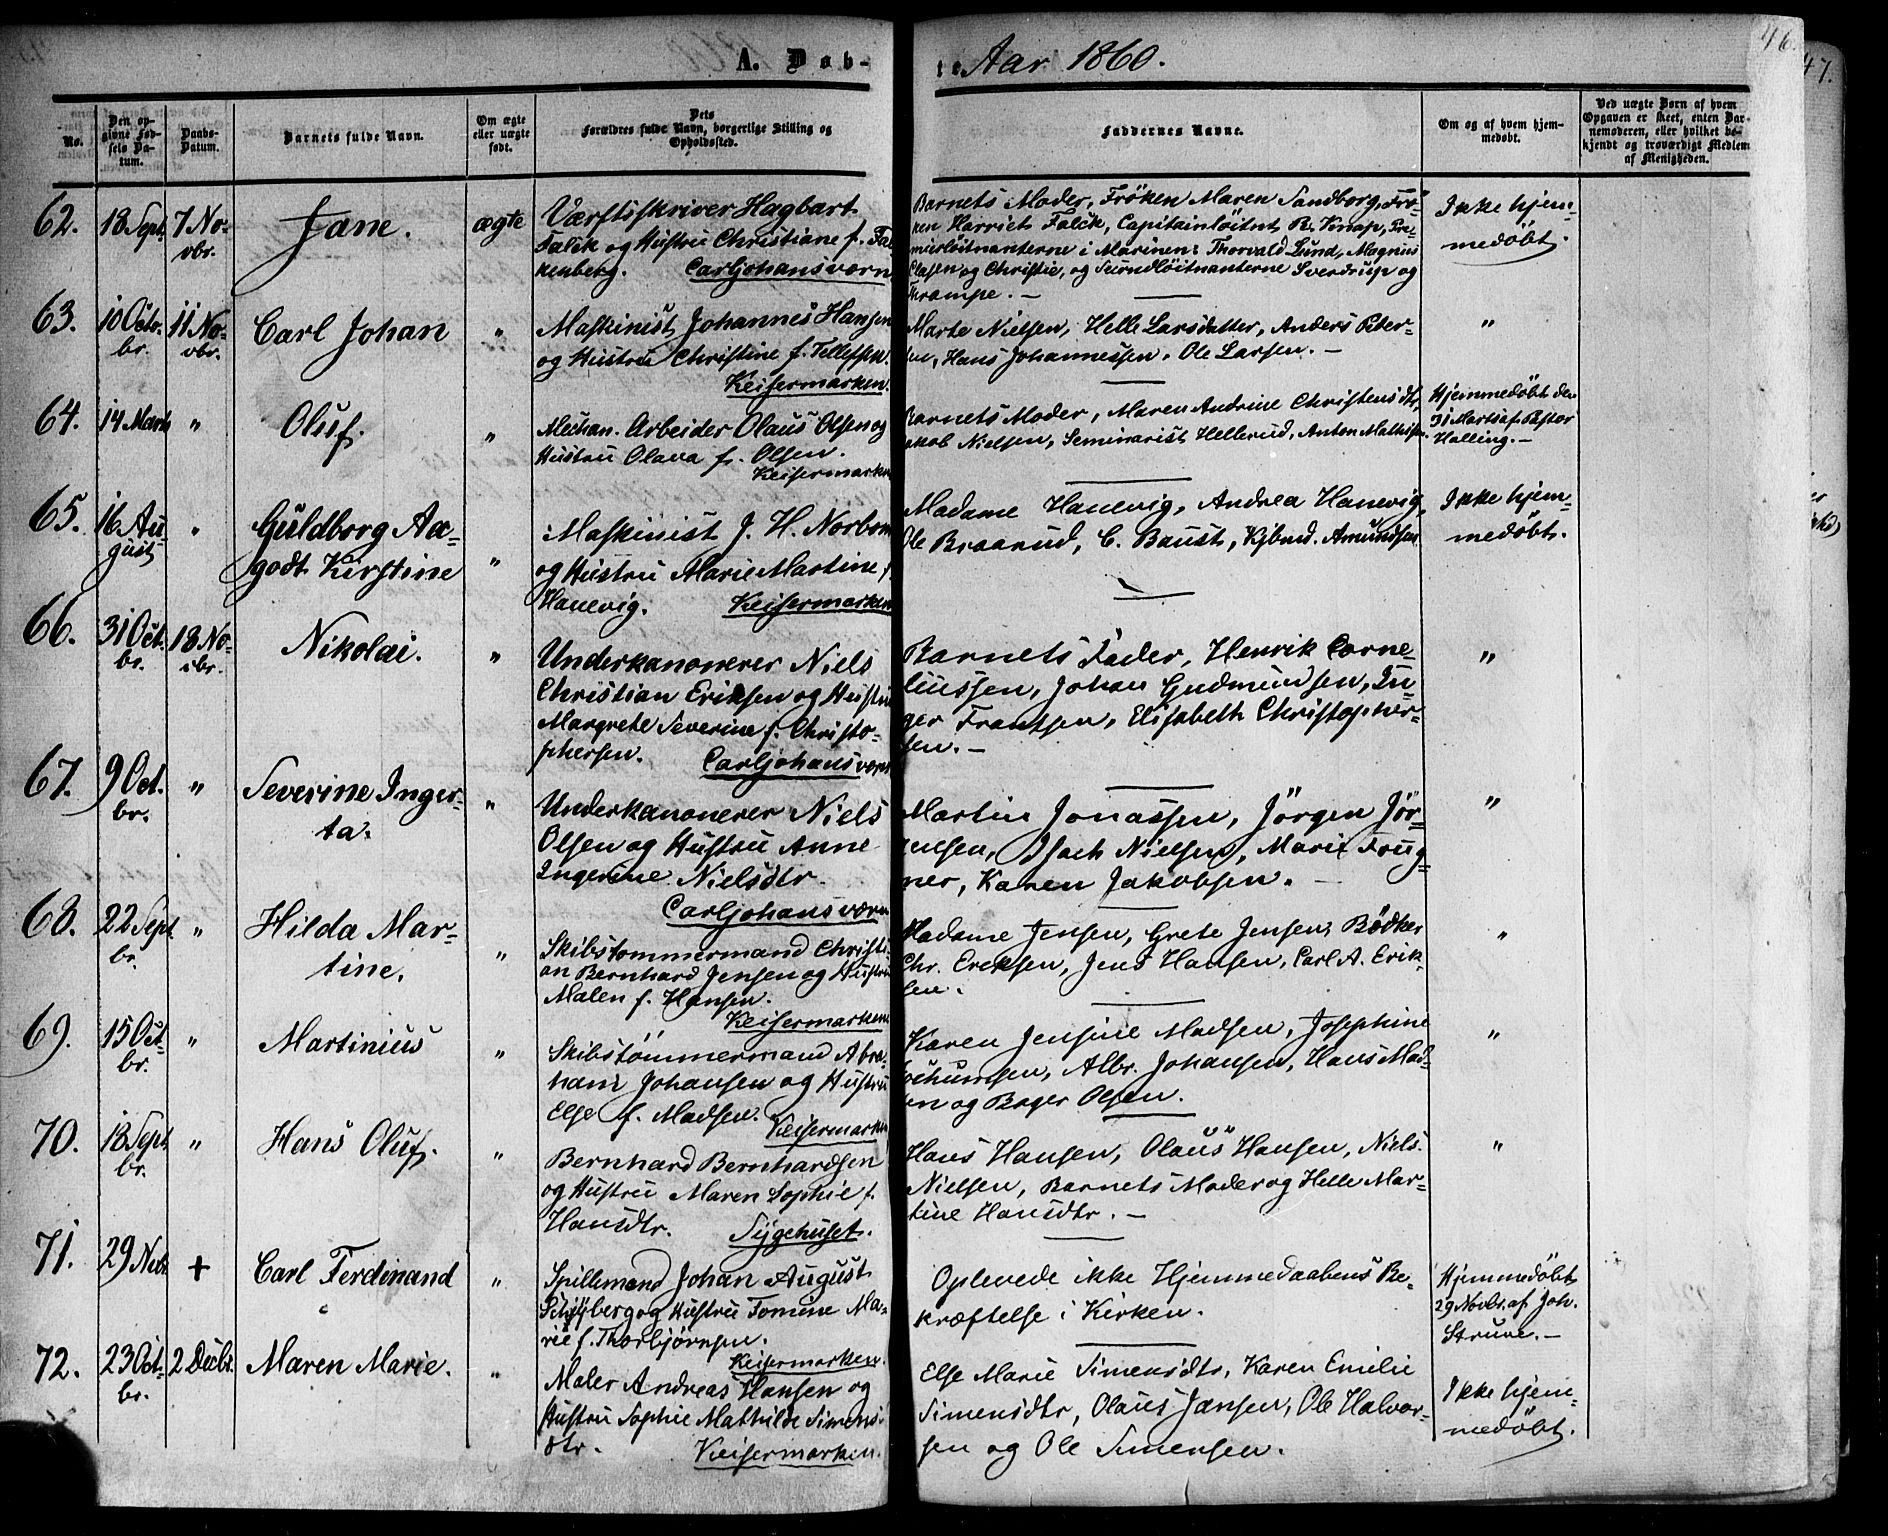 46.
47.
A. Døb-
te. Aar 1860.
No.
Den op-
givne Fød-
sels Da-
tum.
Daabs-
Datum.
Barnets fulde Navn.
Om ægte
eller uægte
født.
Dets
Forældres fulde Navn, borgerlige Stilling og
Opholdssted.
Faddernes Navne.
Om og af hvem hjem-
medøbt.
Ved uægte Børn af hvem
Opgaven er skeet, enten Bar-
nemoderen, eller hvilket be-
kjendt og troværdigt Medlem
af Menigheden.
62.
18 Sept.
7 No-
vbr.
Jane.
ægte
Værftsskriver Hagbart
Falck og Hustru Christiane f. Fal-
kenberg. Carljohansværn
Barnets Moder, Frøken Maren Sandborg, Frø-
ken Harriet Falck, Capitainløitnt R. Knap, Pre-
mierløitnanterne i Marinen: Thorvald Lund, Magnus
Clasen og Christie, og Secundløitnanterne Sverdrup og
Thrampe. —
Ikke hjem-
medøbt.
63.
10 Octo-
br.
11 No-
vbr.
Carl Johan
"
Maskinist Johannes Hansen
og Hustru Christine f. Tellefsen.
Keisermarken.
Marte Nielsen, Helle Larsdatter, Anders Peter-
sen, Hans Johannessen, Ole Larsen. —
"
64.
14 Marts
"
Oluf.
"
Mechan. Arbeider Olaus Olsen og
Hustru Olava f. Olsen.
Keisermarken
Barnets Moder, Maren Andrine Christensdtr,
Jakob Nielsen, Seminarist Hellerud, Anton Mathisen.
Hjemmedøbt den
31 Marts af Pastor
Halling. —
65.
16 Au-
gust
"
Guldborg Aa-
godt Kirstine
"
Maskinist J. H. Norbom
og Hustru Marie Martine f.
Hanevig. Keisermarken
Madame Hanevig, Andrea Hanevig,
Ole Braarud, C. Baust, Kjbmd. Amundsen.
Ikke hjem-
medøbt.
66.
31 Oct.
br.
18 No-
vbr.
Nikolai.
"
Underkanonerer Niels
Christian Eriksen og Hustru
Margrete Severine f. Christo-
phersen. Carljohansværn
Barnets Fader, Henrik Corne-
liussen, Johan Gudmundsen, In-
ger Frantsen, Elisabeth Christopher-
sen. —
"
67.
9 Oct.
br.
"
Severine Inger-
ta.
"
Underkanonerer Niels
Olsen og Hustru Anne
Ingerine Nielsdtr.
Carljohansværn
Martin Jonassen, Jørgen Jør-
gensen, Isach Nielsen, Marie Frug-
ner, Karen Jakobsen. —
"
68.
22 Sept.
br.
"
Hilda Mar-
tine.
"
Skibstømmermand Christi-
an Bernhard Jensen og Hustru
Malen f. Hansen.
Keisermarken
Madame Jensen, Grete Jensen, Bødker
Chr. Ereksen, Jens Hansen, Carl A. Erik-
sen.
"
69.
15 Oct-
br.
"
Martinius
"
Skibstømmermand Abra-
ham Johansen og Hustru
Else f. Madsen. Keisermarken
Karen Jensine Madsen, Josephine
Jochumsen, Albr. Johansen, Hans Mad-
sen og Bager Olsen.
"
70.
18 Sept.
br.
"
Hans Oluf.
"
Bernhard Bernhardsen
og Hustru Maren Sophie f.
Hansdtr. Sygehuset.
Hans Hansen, Olaus Hansen, Niels
Nielsen, Barnets Moder og Helle Mar-
tine Hansdtr. —
"
71.
29 Novbr.
+
Carl Ferdinand
"
Spillemand Johan August
Schyberg og Hustru Tomine Ma-
rie f. Thorbjørnsen.
Keisermarken.
Oplevede ikke Hjemmedaabens Be-
kræftelse i Kirken.
Hjemmedøbt
29 Novbr. af Joh.
Struve. —
72.
23 Oct-
br.
2 Decbr.
Maren Marie.
"
Maler Andreas Hansen og
Hustru Sophie Mathilde Simens-
dtr. Keisermarken.
Else Marie Simensdtr, Karen Emilie
Simensdtr, Olaus Jansen, Ole Halvor-
sen og Ole Simensen.
Ikke hjem-
medøbt.